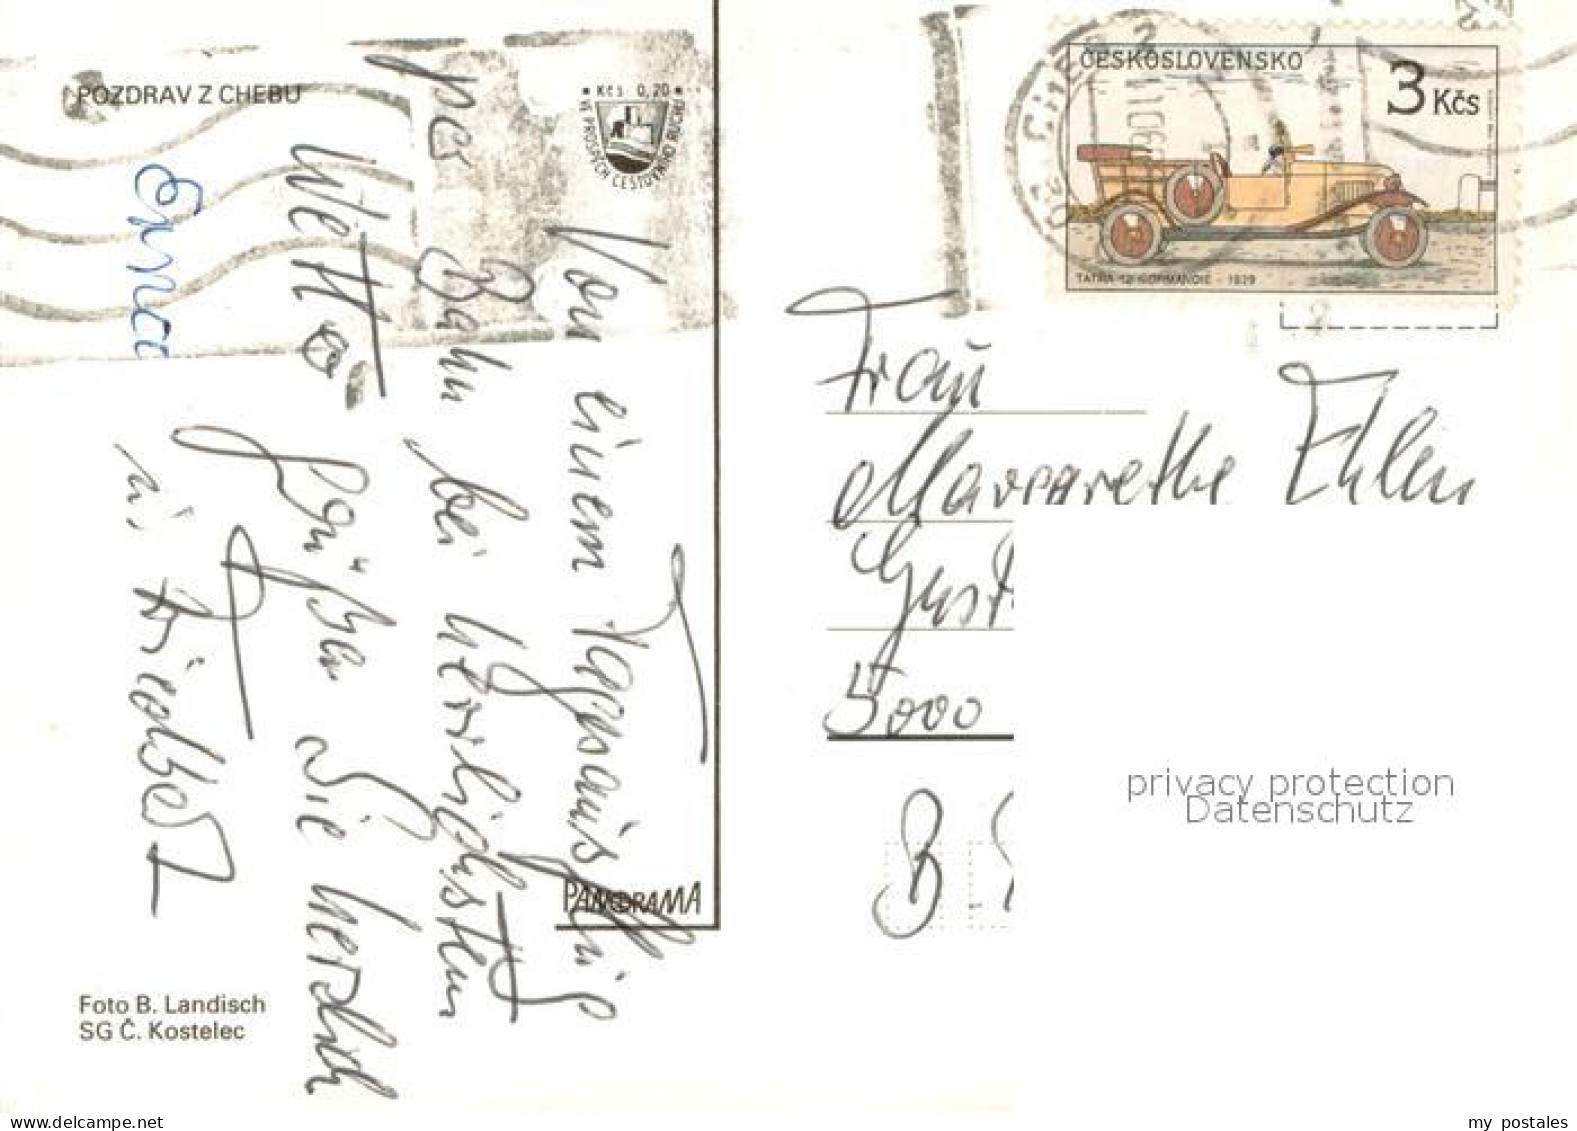 POZDRAV Z CHEBU
Kčs 0,20
VE PROSPĚCH CESTOVNÍHO RUCHU
ČESKOSLOVENSKO
3 Kčs
TATRA 12 NORMANDIE - 1929
Von einem Tagesausflug
per Bahn bei herrlichstem
Wetter grüßen Sie herzlich
Frau
Margarethe Ehlen
5000
B
PANORAMA
Foto B. Landisch
SG Č. Kostelec
privacy protection
Datenschutz
my postales
https://www.delcampe.net